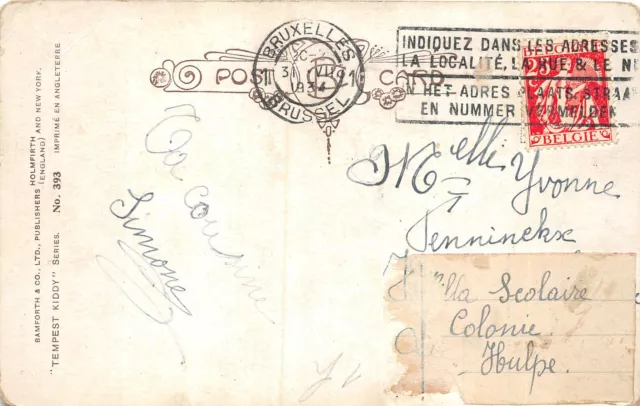 BAMFORTH & CO., LTD., PUBLISHERS HOLMFIRTH (ENGLAND) AND NEW YORK.
"TEMPEST KIDDY" SERIES. No. 393 IMPRIMÉ EN ANGLETERRE
POST CARD
BRUXELLES
1934
BRUSSEL
INDIQUEZ DANS LES ADRESSES
LA LOCALITÉ, LA RUE & LE N
HET ADRES PLAATS, STRAA
EN NUMMER VERMELDEN
BELGIE
Ta cousine
Simone
Melle Yvonne
Jenninckx
Scolaire
Colonie
Hulpe.